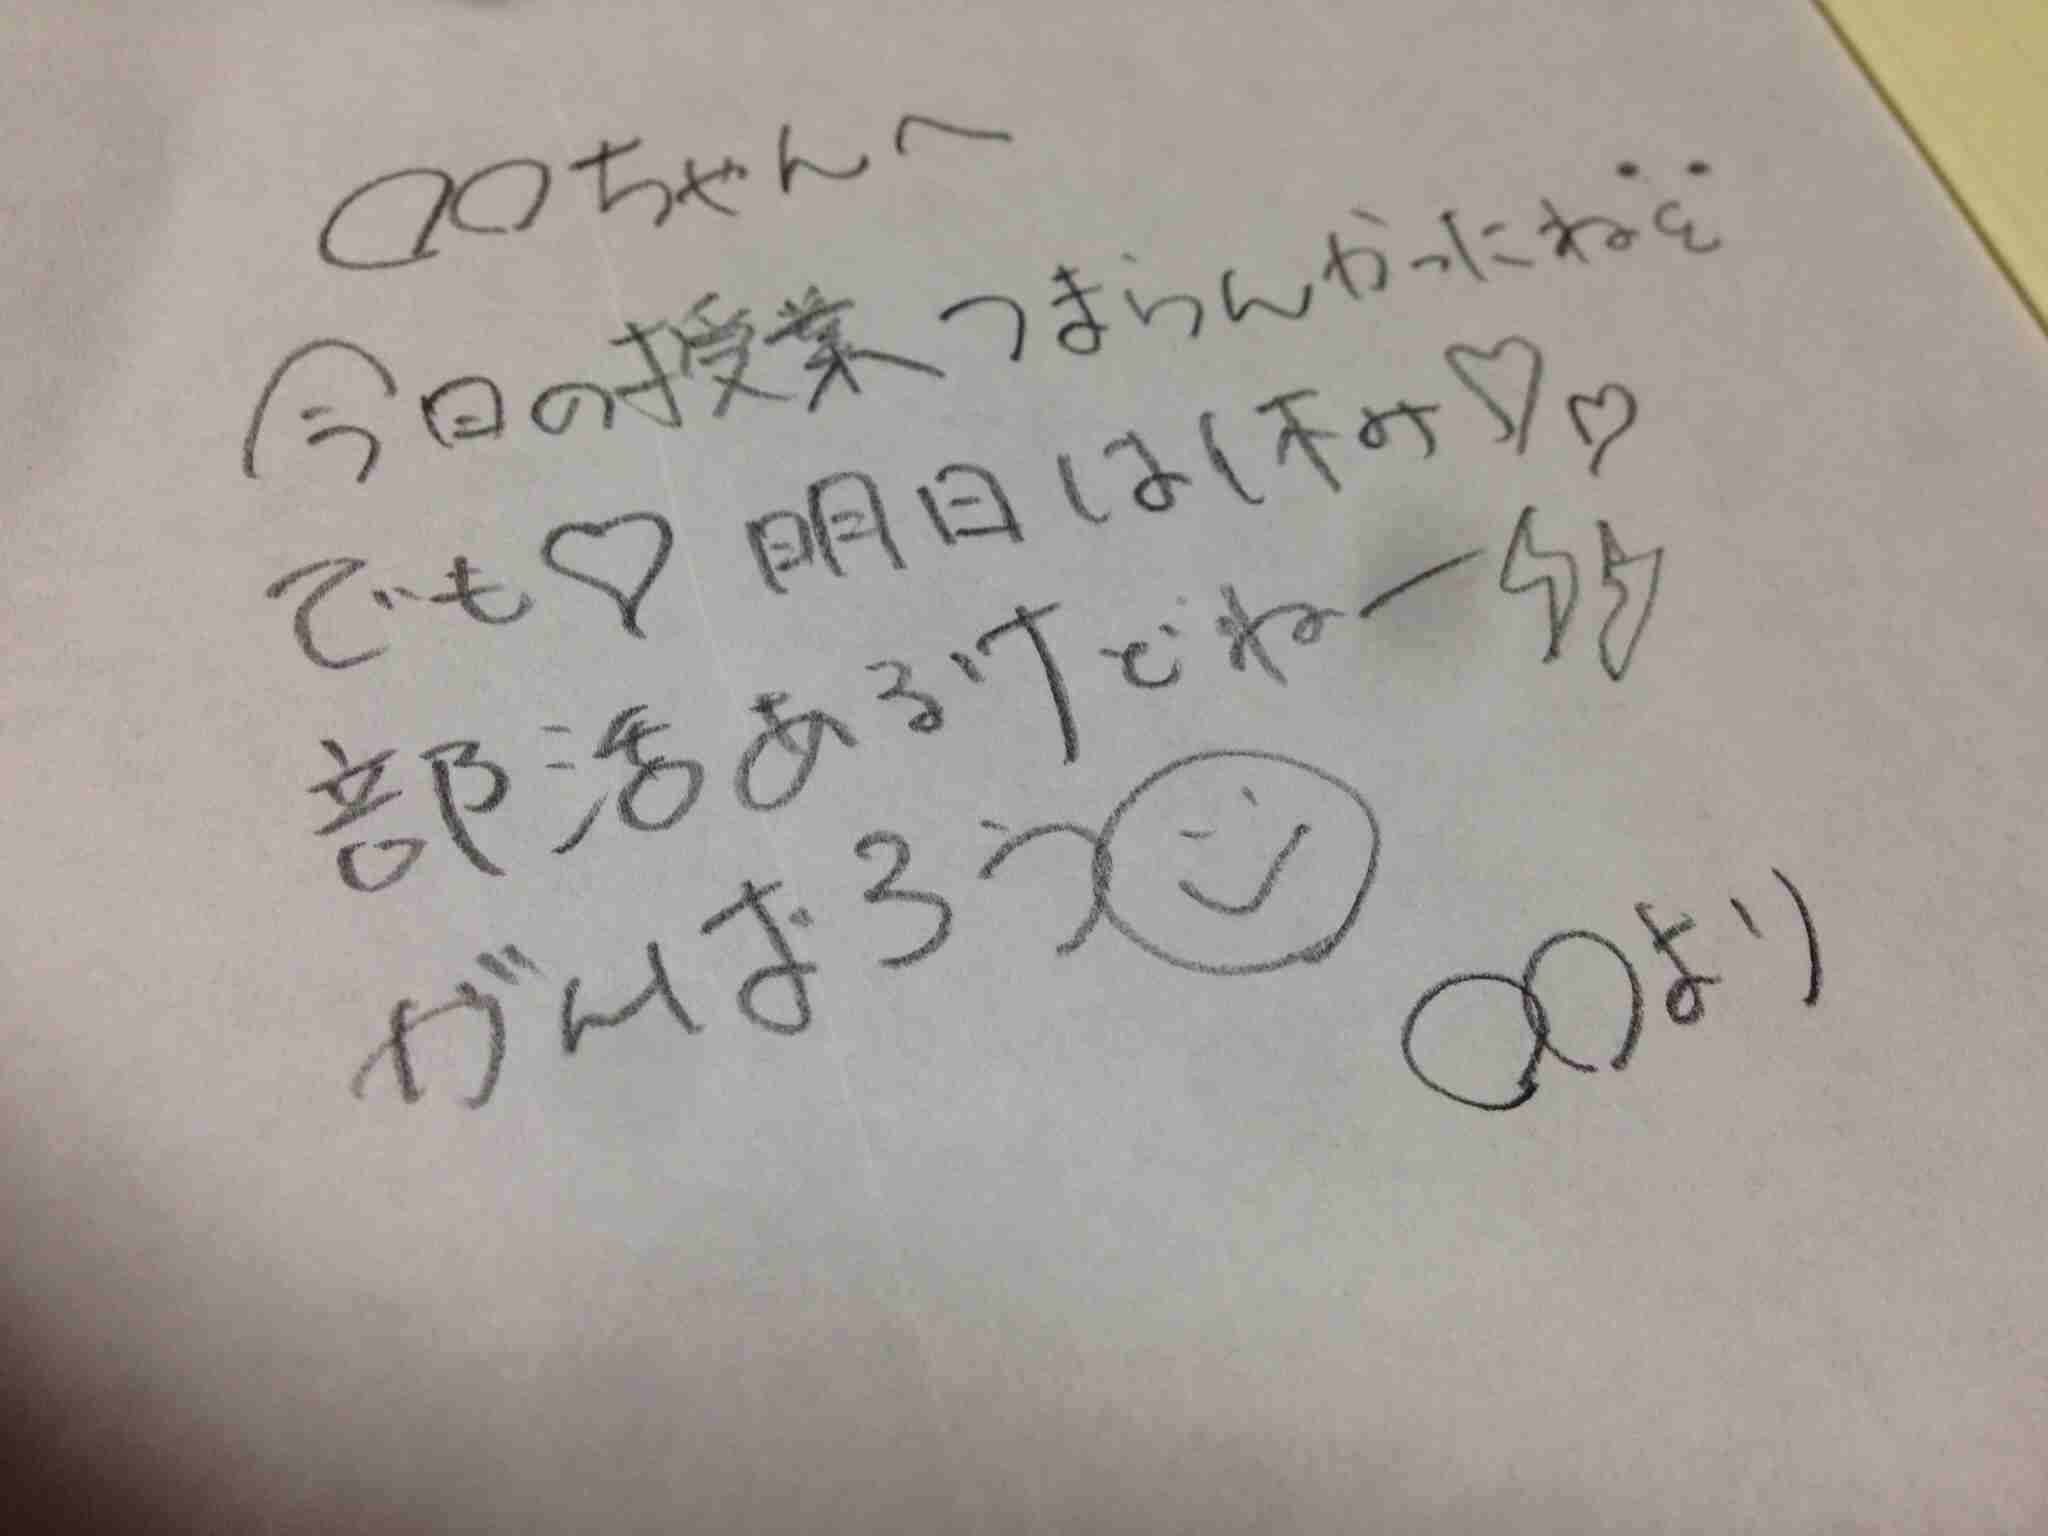 ○○ちゃんへ
今日の授業つまらんかったね
でも♡明日は休み♡♡
部活あるけどねー
がんばろう
○○より